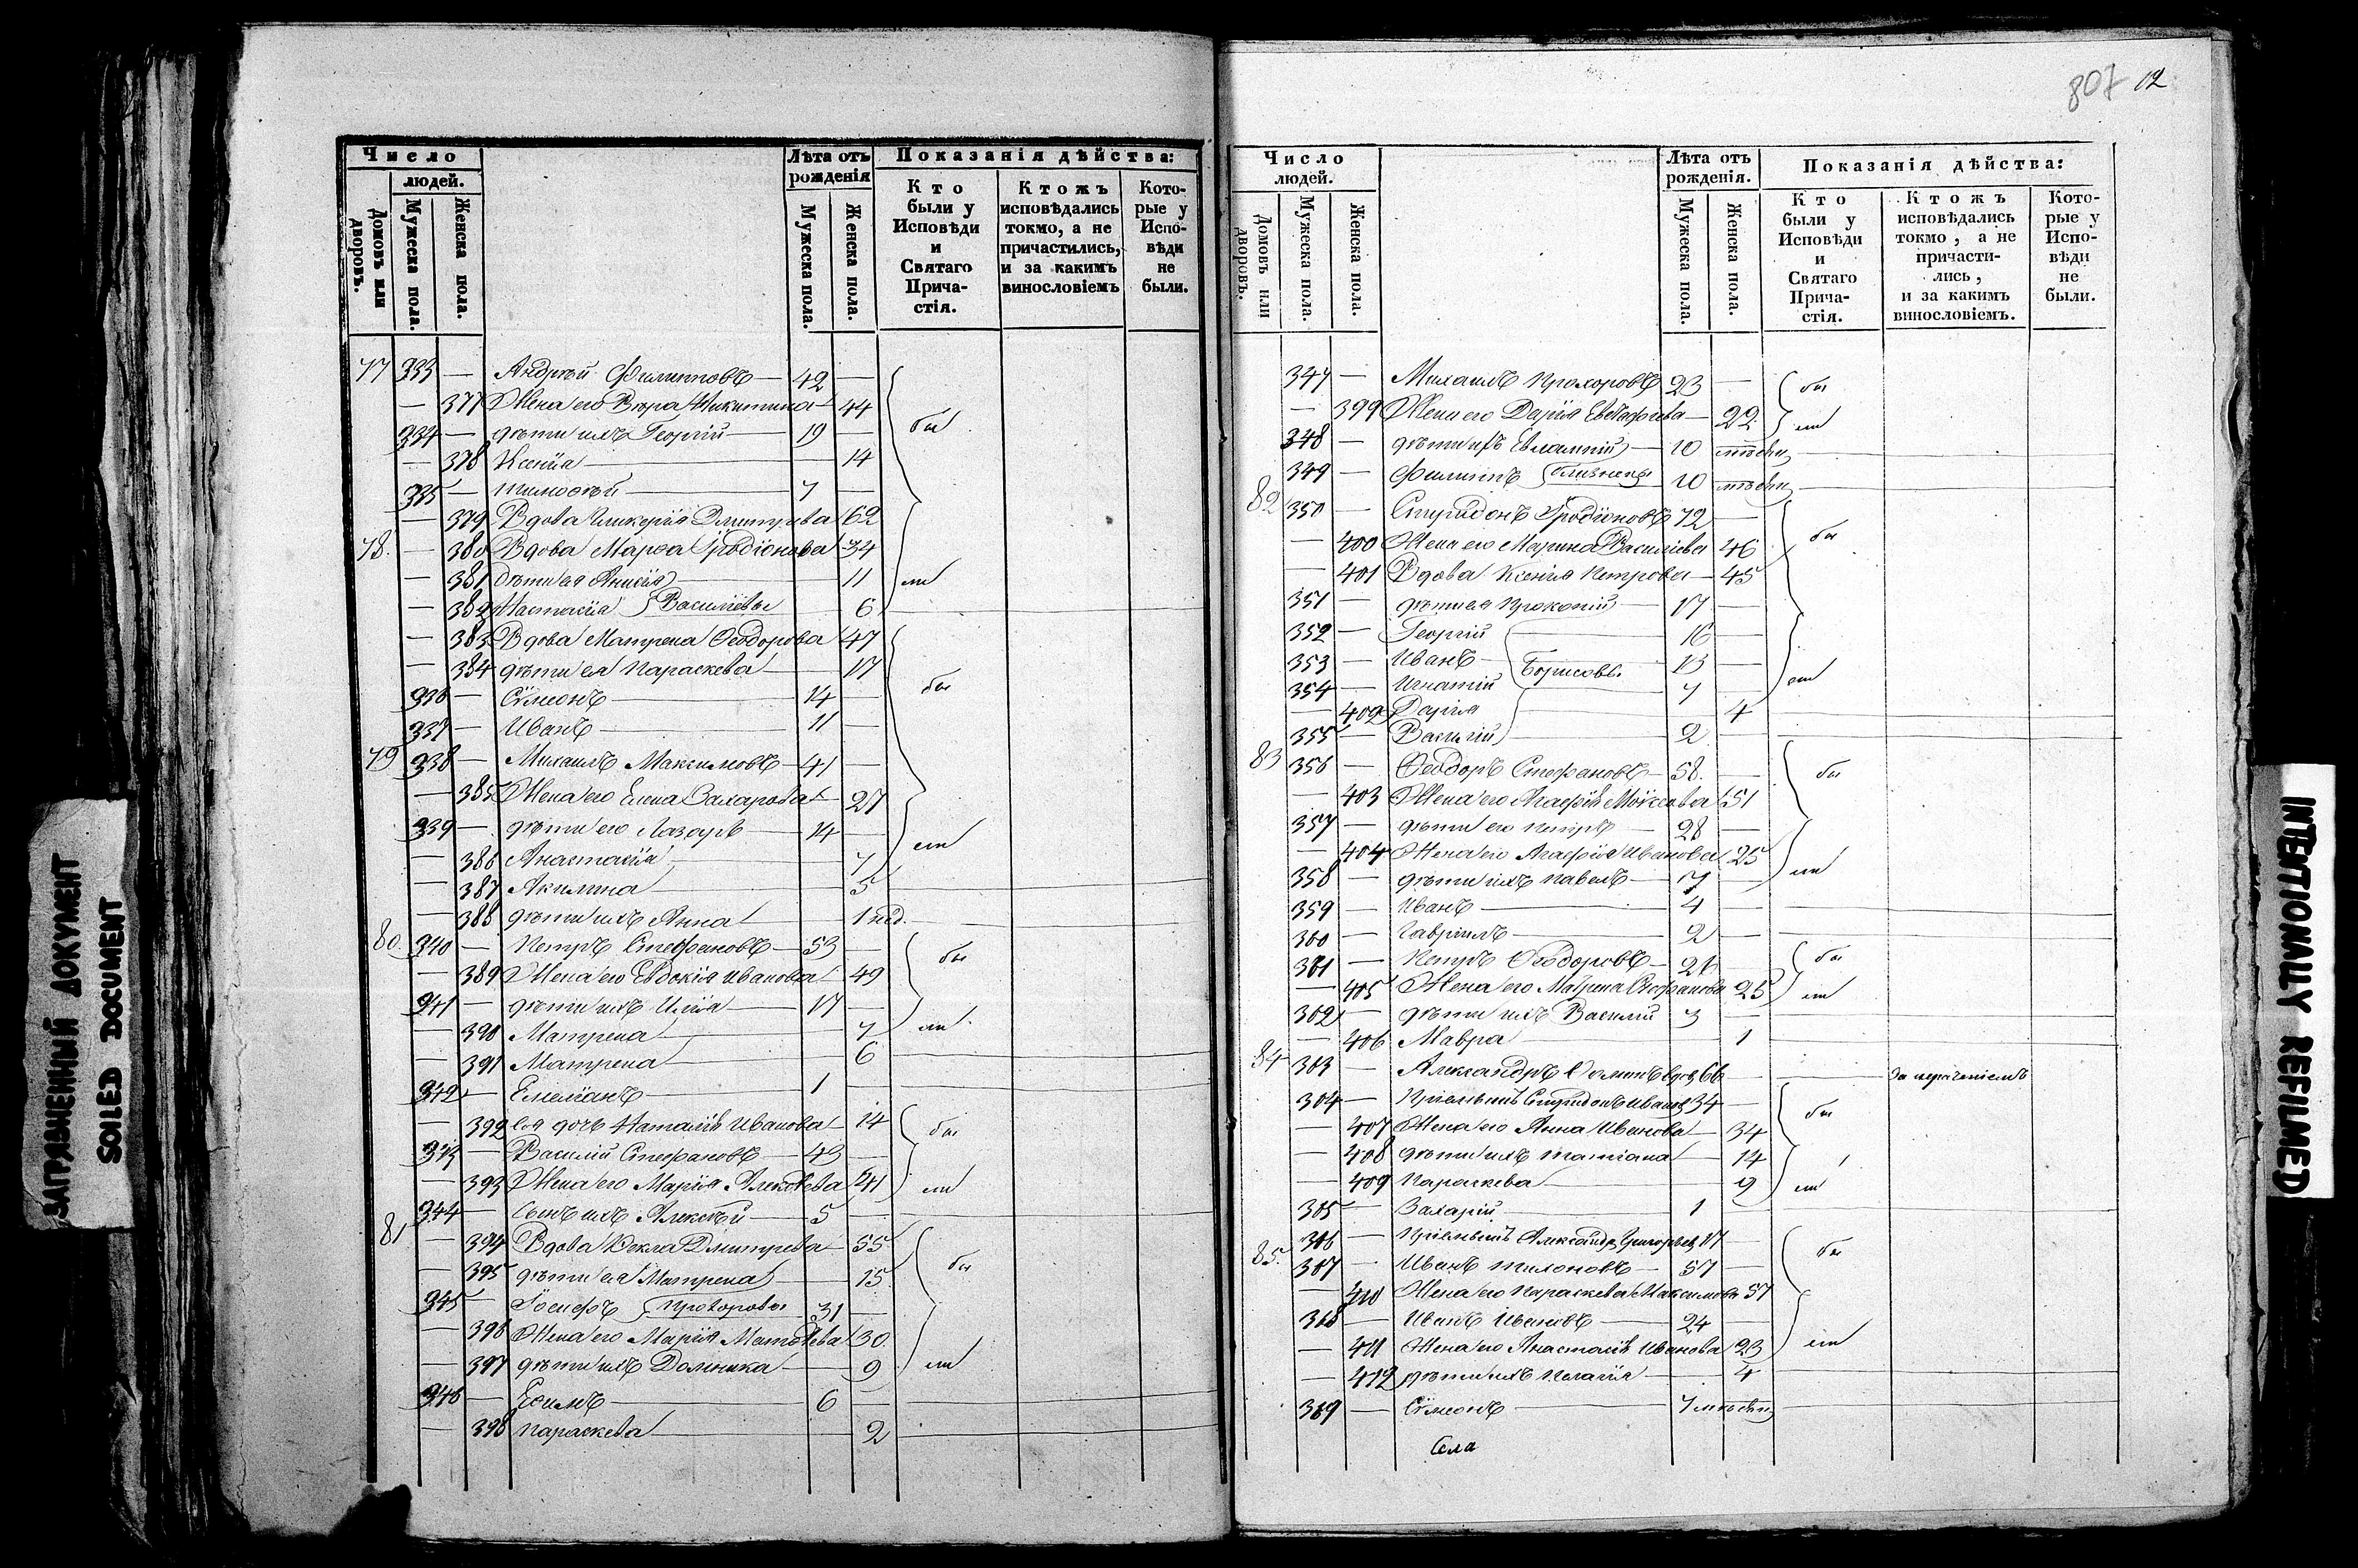 ЗАГРЯЗНЕННЫЙ ДОКУМЕНТ
SOILED DOCUMENT
Число людей.
Домовъ или дворовъ.
Мужеска пола.
Женска пола.
Лѣта отъ рожденія
Мужеска пола.
Женска пола.
Показанія дѣйства:
Кто были у Исповѣди и Святаго Прича-стія.
Ктожъ исповѣдались токмо, а не причастились, и за какимъ винословіемъ
Кото-рые у Испо-вѣди не были.
77 333 — Андрей Филипповъ — 42 —
— 377 Жена его Вѣра Никитина — 44
бы
334 — дѣти ихъ Георгій — 19 —
— 378 Ксенія — 14
335 — Тимоѳей — 7 —
— 379 Вдова Гликерія Дмитріева 62
78. — 380 Вдова Марѳа Іродіонова 34
— 381 дѣти ея Анисія — 11
ли
— 382 Настасія } Василіевы 6
— 383 Вдова Матрена Ѳеодорова 47
— 384 дѣти ея Параскева — 17
бы
336 — Сѵмеонъ — 14 —
337 — Иванъ — 11 —
79 338 — Михаилъ Максимовъ — 41 —
— 385 Жена его Елена Захарова — 27
339 — дѣти его Лазарь — 14 —
ли
— 386 Анастасія — 7
— 387 Акилина — 5
— 388 дѣти ихъ Анна — 1 нед.
80. 340 — Петръ Стефановъ — 53 —
бы
— 389 Жена его Евдокія Иванова — 49
341 — дѣти ихъ Илія — 17 —
ли
— 390 Матрена — 7
— 391 Матрена — 6
342 — Емеліанъ — 1
— 392 дочь Наталія Иванова — 14
бы
343 — Василій Стефановъ — 43 —
— 393 Жена его Марія Алексѣева 41
ли
344 — сынъ ихъ Алексѣй — 5 —
81 — 394 Вдова Ѳекла Дмитріева — 55
бы
— 395 дѣти ея Матрена — 15
345 — Іосифъ } Прохоровы 31 —
— 396 Жена его Марія Матѳѣева 30.
— 397 дѣти ихъ Домника — 9
ли
346 — Еѳимъ — 6 —
— 398 Параскева — 2
807 12
Число людей.
Домовъ или дворовъ.
Мужеска пола.
Женска пола.
Лѣта отъ рожденія.
Мужеска пола.
Женска пола.
Показанія дѣйства:
Кто были у Исповѣди и Святаго Прича-стія.
Ктожъ исповѣдались токмо, а не причасти-лись, и за какимъ винословіемъ.
Кото-рые у Испо-вѣди не были.
347 — Михаилъ Прохоровъ 23 —
бы
— 399 Жена его Дарія — 22.
ли
348 — дѣти ихъ Евлампій — 10 мѣсяц
349 — Филиппъ } близнецы 10 мѣсяц
82 350 — Спиридонъ Іродіоновъ 72 —
бы
— 400 Жена его Марина Василіева 46
— 401 Вдова Ксенія Петрова — 45
351 — дѣти ея Прокопій — 17 —
352 — Георгій — 16 —
353 — Иванъ — Борисовы. 13 —
ли
354 — Игнатій 7 —
— 402 Дарія 4
355 — Василій 2 —
83 356 — Ѳеодоръ Стефановъ — 58. —
бы
— 403 Жена его Агафія Моѵсеева 51
357 — дѣти его Петръ — 28 —
— 404 Жена его Агафія Иванова 25
358 — дѣти ихъ Павелъ — 7 —
ли
359 — Иванъ — 4 —
360 — Гавріилъ — 2 —
361 — Петръ Ѳеодоровъ —
бы
— 405 Жена его Матрена Стефанова 25
ли
362 — дѣти ихъ Василій 3 —
— 406 Мавра — 1
84 363 — Александръ вдов 66 —
304 — Пріемышъ Спиридонъ Иванов 34 —
бы
— 407 Жена его Анна Иванова — 34
— 408 дѣти ихъ Татіана — 14
— 409 Параскева — 9
ли
305 — Захарій — 1 —
306 — Пріемышъ Александръ Григорьев 17 —
бы
85. 307 — Иванъ — 57 —
— 410 Жена его Параскева Максимова 57
308 — Иванъ Ивановъ — 24 —
ли
— 411 Жена его Анастасія Иванова 23
— 412 дѣти ихъ Пелагія — 4
309 — Сѵмеонъ — 7 мѣсяц
Села
INTENTIONALLY REFILMED